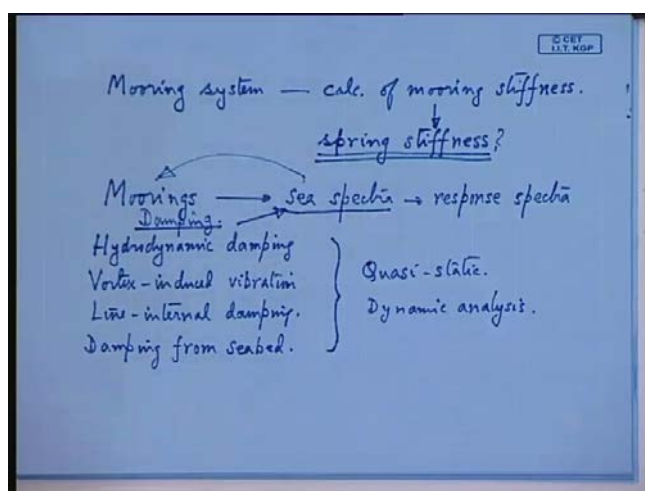 © CET
I.I.T. KGP
Mooring system — calc. of mooring stiffness.
spring stiffness?
Moorings → sea spectra → response spectra
Damping.
Hydrodynamic damping
Vortex-induced vibration
Line-internal damping.
Damping from seabed.
Quasi-static.
Dynamic analysis.